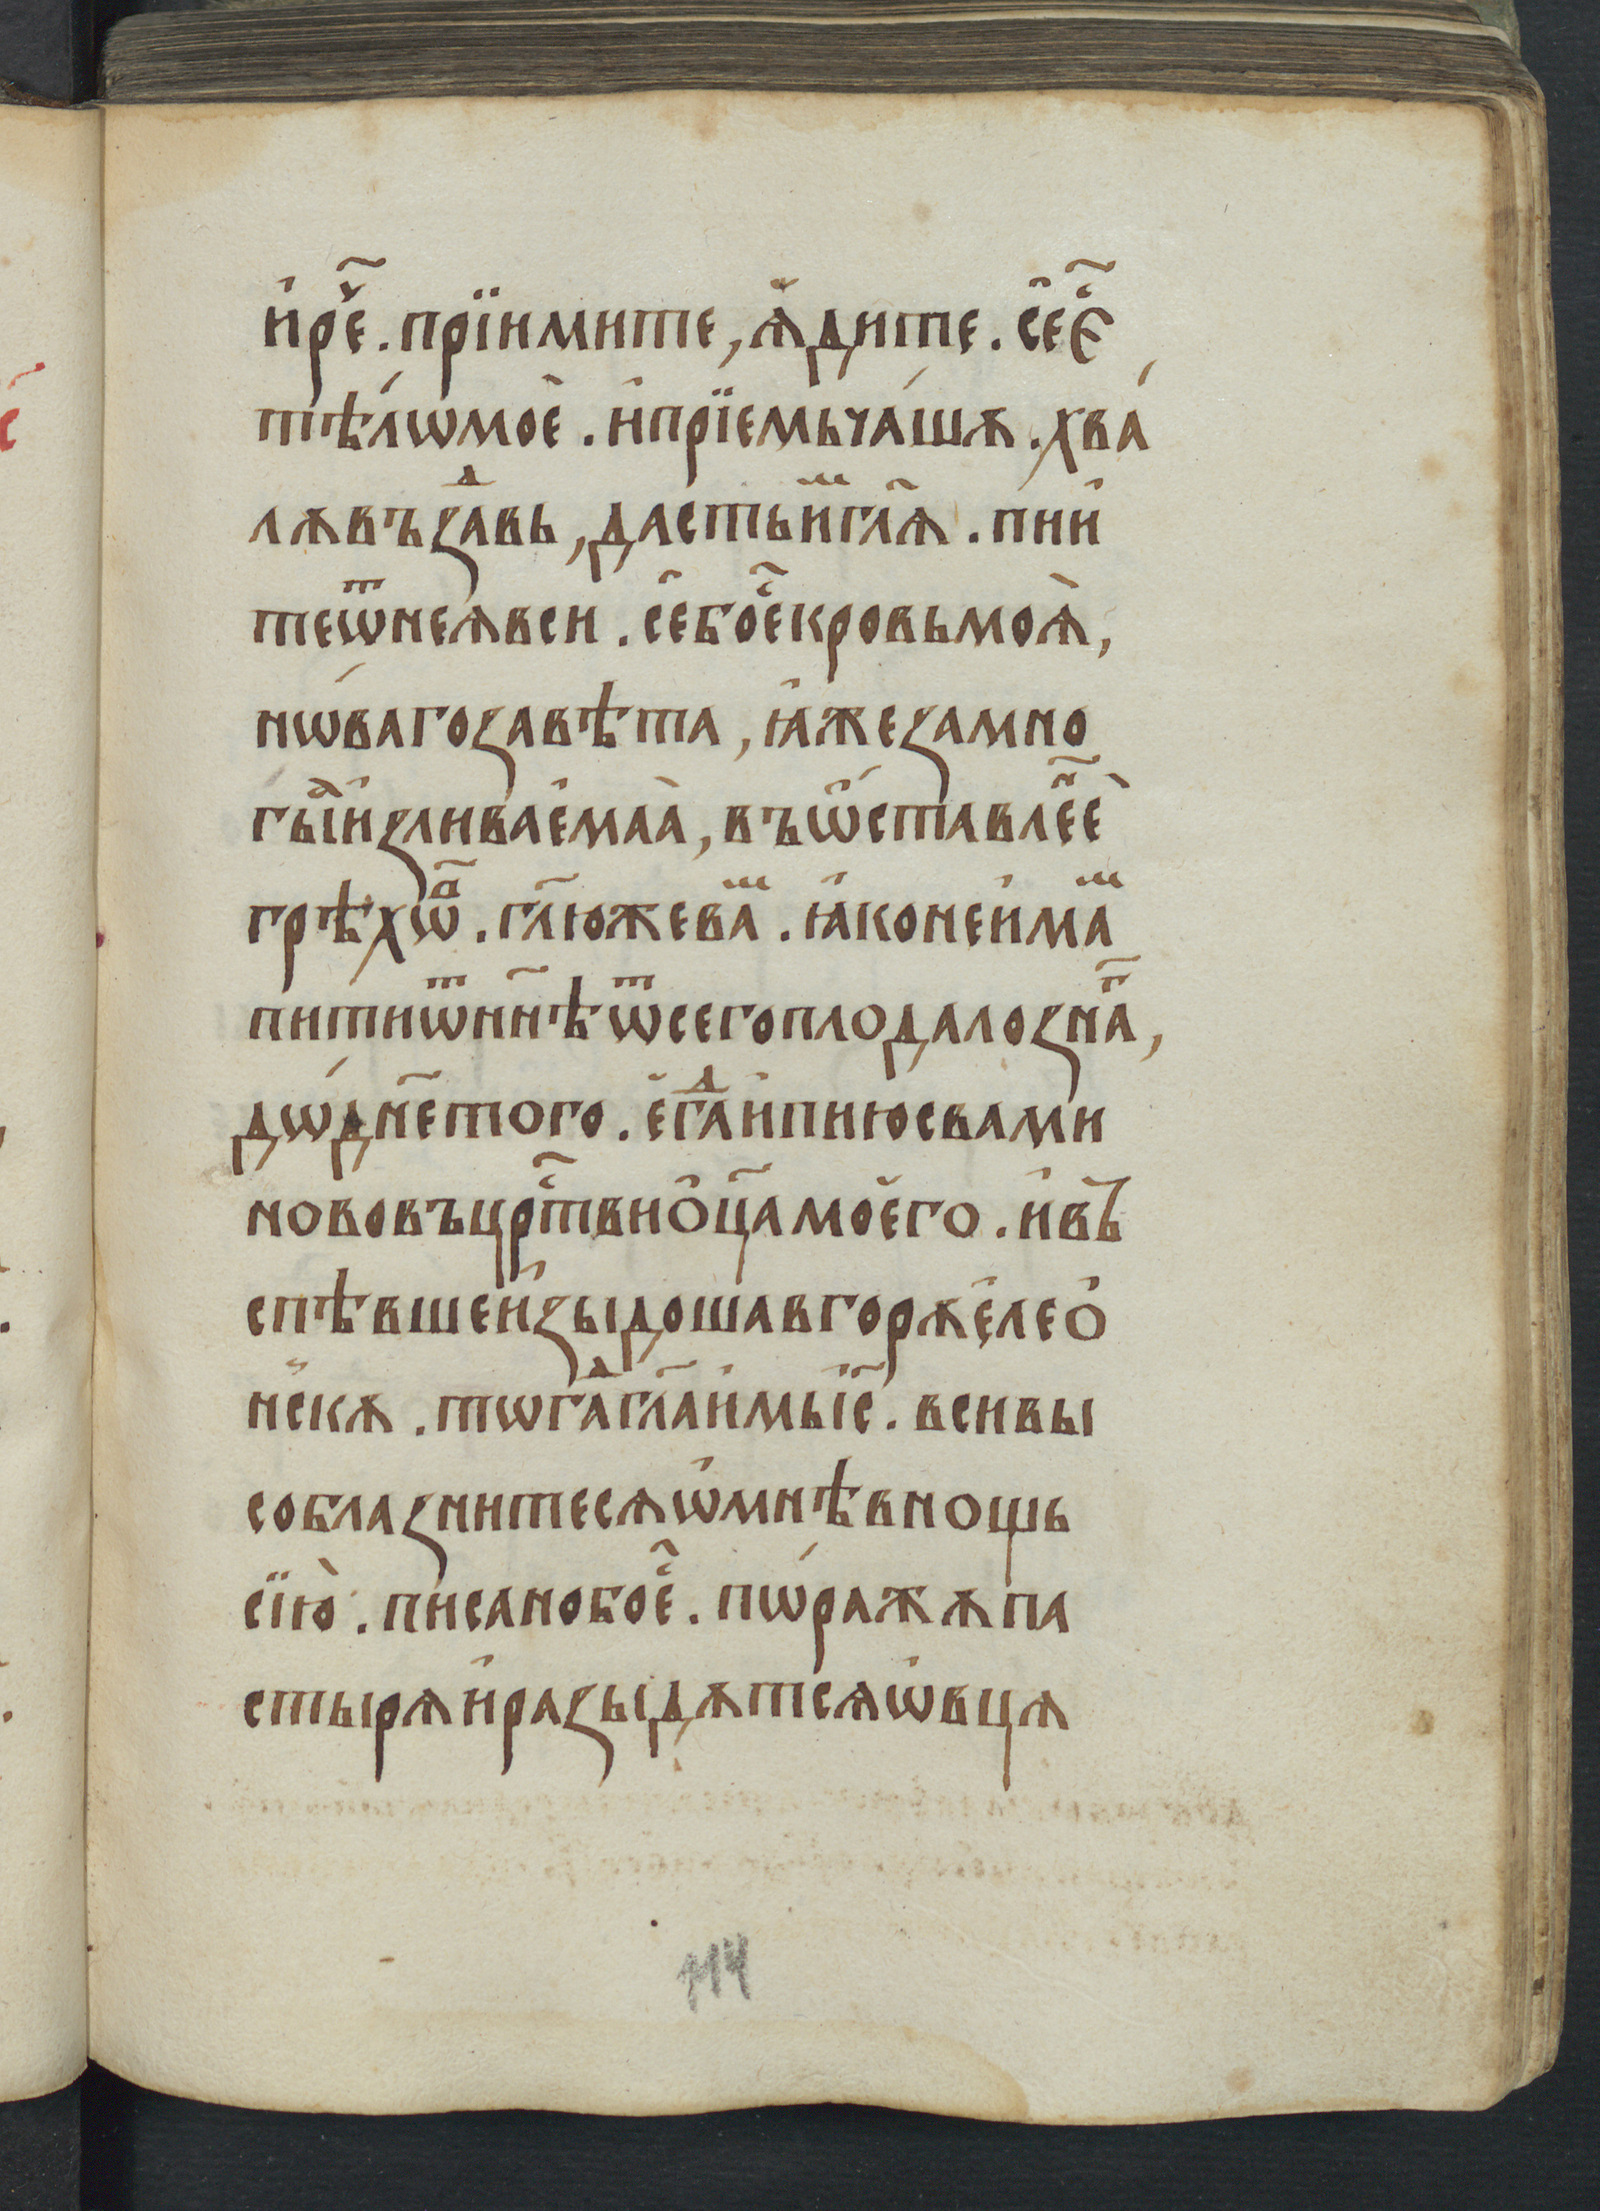 и҆рече҃ . прїимите , ꙗ҆дите . се҆ є҆с҃
тѣ́лѡ моѐ . и҆ прїемь ча́шѫ . хва́
лѫ въꙁдавь , дасть и҆мъ гл҃ѧ . пїи
те ѿ неѧ вси . се҆ бо ес҃ кровь моѧ̀ ,
нѡ́ваго ꙁавѣта , ꙗ҆же ꙁа мно
гы̑ и҆ꙁливае҆маа̀ , въ ѡ҆ставле́нїе
грѣхѡ҃ⷡ . гл҃ю же ваⷨ . ꙗ҆ко не и҆маⷨ
пити ѿ нн҃ѣ ѿ сего плода лоꙁнаⷢ҇ ,
дѡ́ дн҃е того . е҆гдⷶ и҆ пию с вами
ново въ црⷭ҇тви ѻ҆ц҃а мое҆го . и҆ въ
спѣвше и҆ꙁыдоша в горѫ е҆леѻ҆
нскѫ . тѡгдⷶ гл҃а и҆мь і҆с҃ . вси вы
соблаꙁнитесѧ ѡ҆ мнѣ в нощь
сїю̀ . писано бо ес҃ . пѡ́ражѫ па
стырѧ и҆ раꙁыдѫтсѧ ѡ҆вцѧ
114